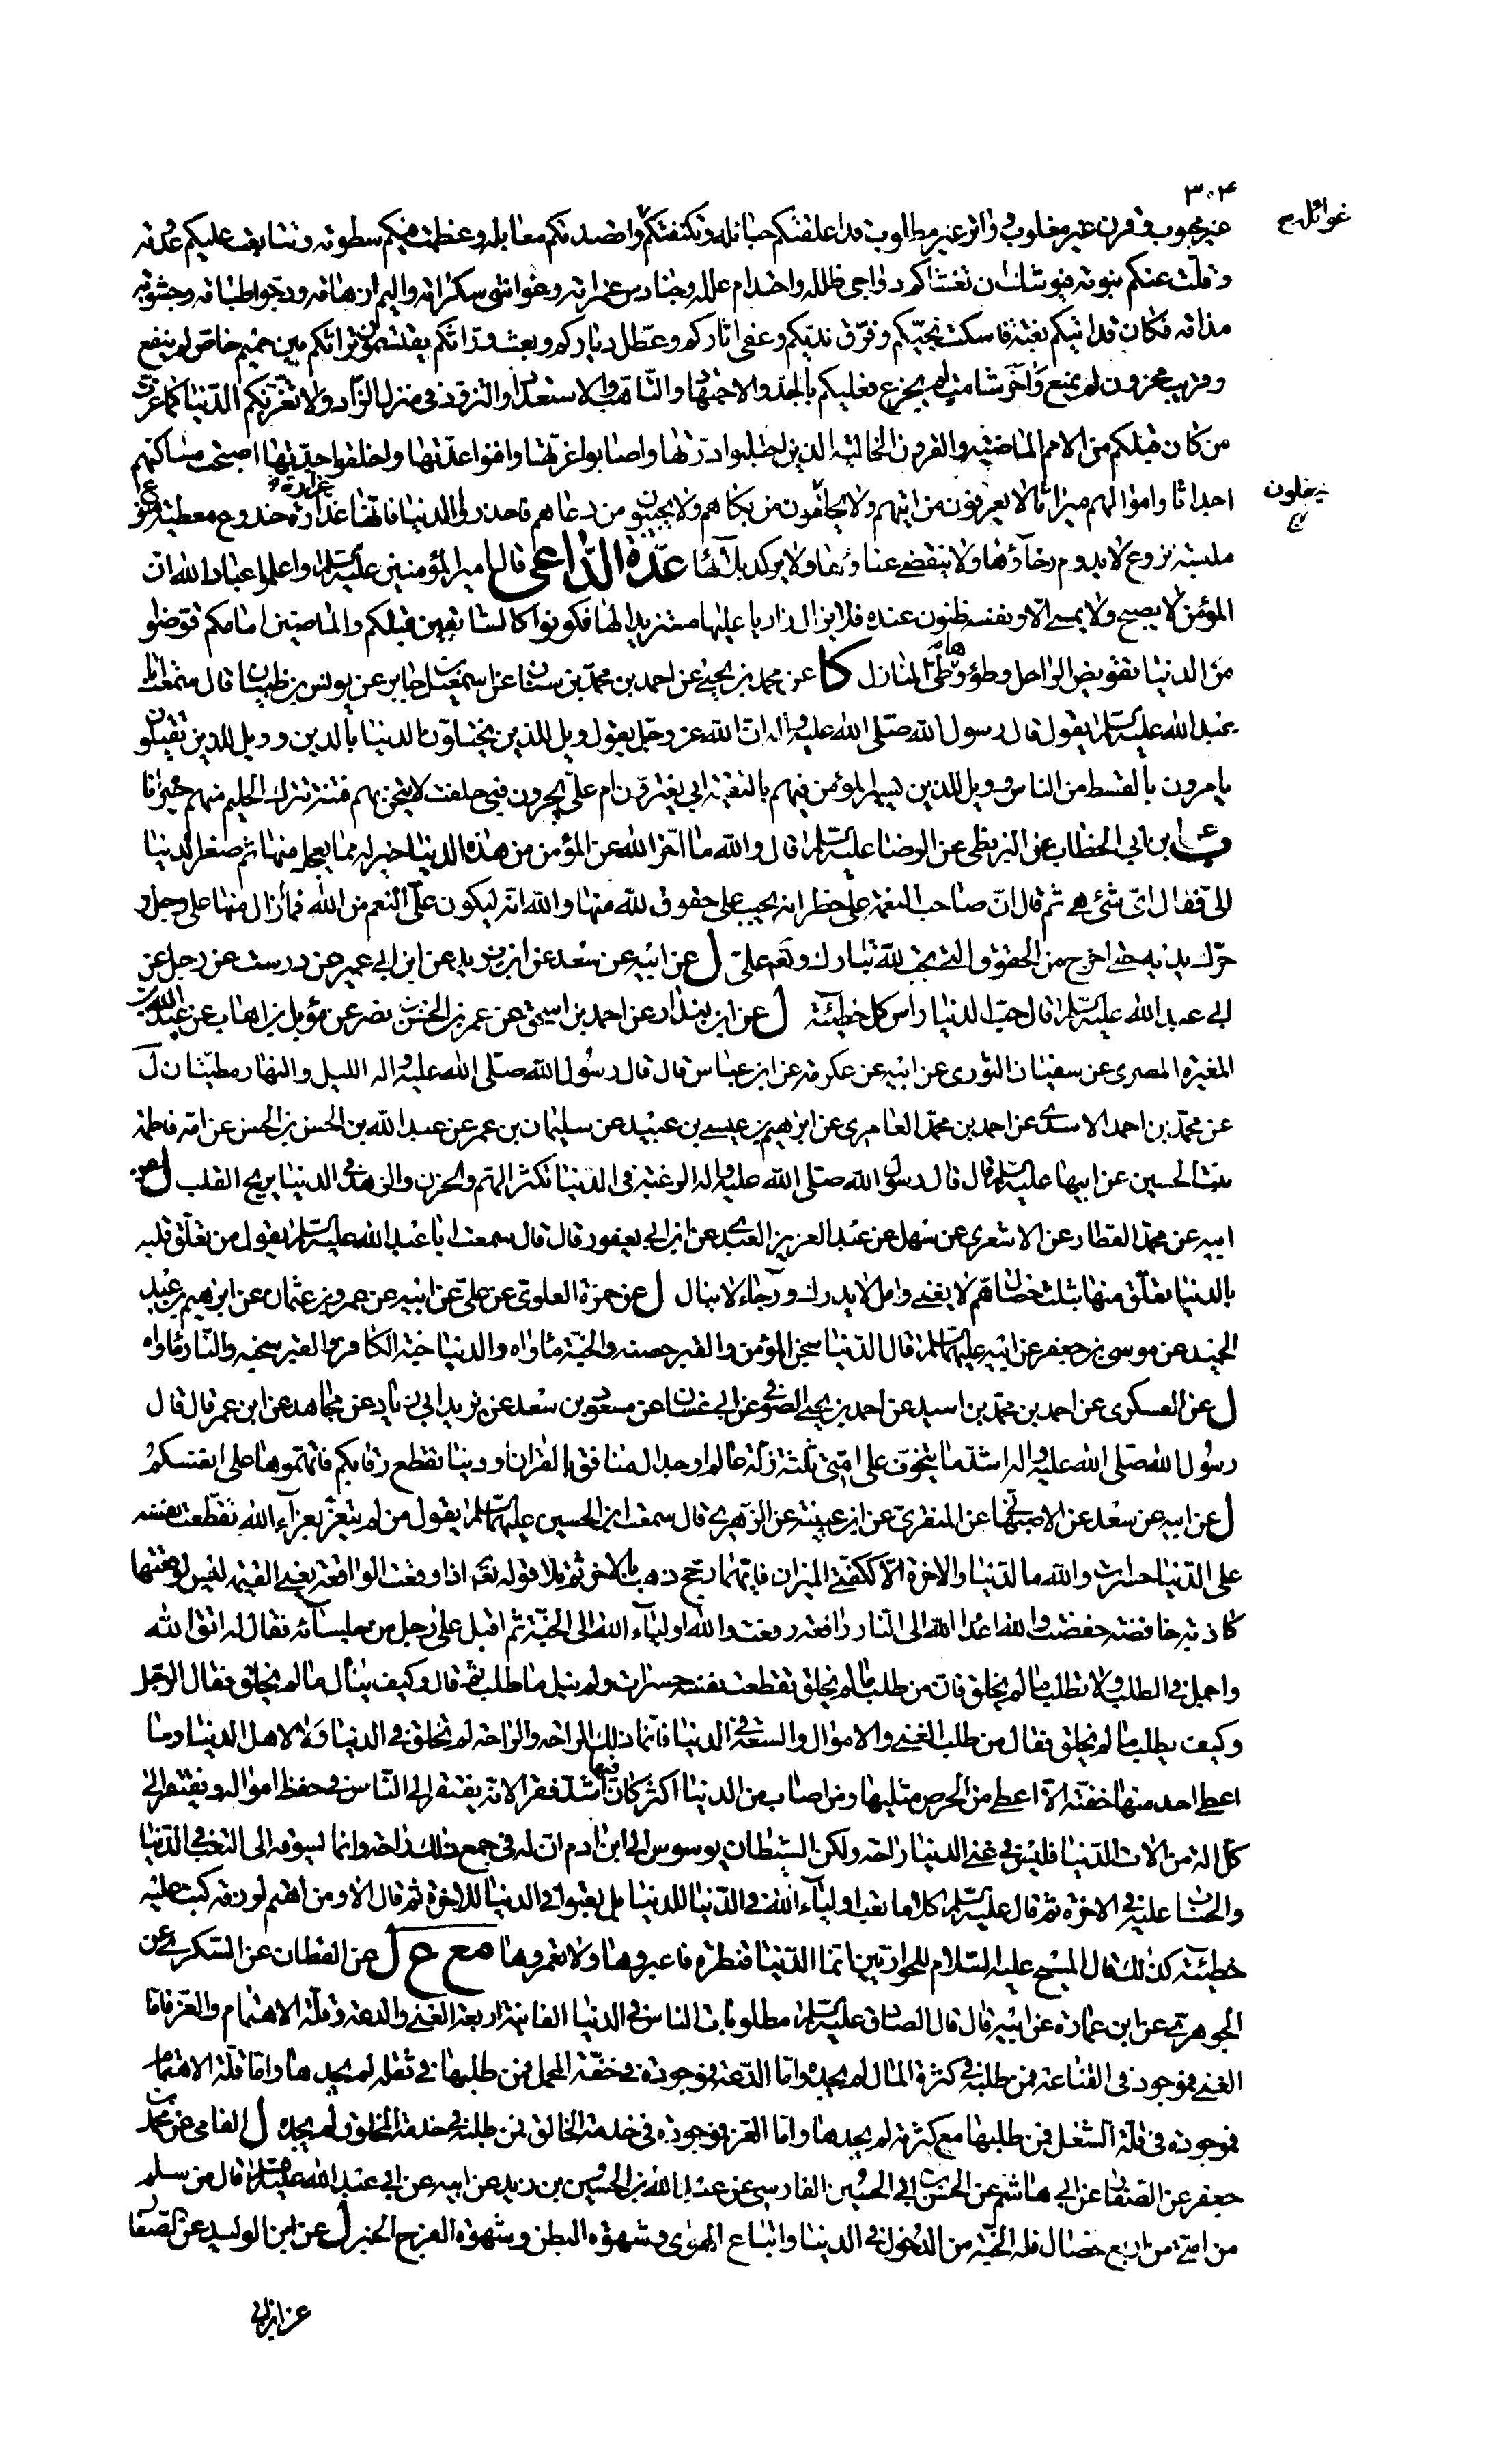 ٣٠٤
غير محبوب وقرن غير مغلوب وواتر غير مطلوب قد اعلقتكم حبائله وتكنفتكم واقصدتكم معابله وعظمت فيكم سطوته وتتابعت عليكم عدوته
غوائله
وقلّت عنكم نبوته فيوشك ان تغشاكم دواجي ظلله واحتدام علله وحنادس غمراته وغواشي سكراته واليم ازهاقه ودجو اطباقه وجشوبة
مذاقه فكان قد اتيكم بغتة فاسكت نجيّكم وفرّق نديّكم وعفى اثاركم وعطّل دياركم وبعث ورّاثكم يقتسمون تراثكم بين حميم خاصّ لم ينفع
وقريب محزون لم يمنع وآخر شامت لم يجزع فعليكم بالجدّ والاجتهاد والتاهب والاستعداد والتزود في منزل الزّاد ولا تغرّنكم الدّنيا كما غرّت
من كان قبلكم من الامم الماضية والقرون الخالية الذين احتلبوا درّتها واصابوا غرّتها وافنوا عدّتها واخلقوا جدّتها اصبحت مساكنهم
اجداثا واموالهم ميراثا لا يعرفون من اتيهم ولا يحلفون من بكاهم ولا يجيبون من دعاهم فاحذروا الدنيا فانّها غدّارة غرارة خدوع معطية منوع
يحفلون
ملبسة نزوع لا يدوم رخاؤها ولا ينقضي عناؤها ولا يركد بلاؤها عدّة الدّاعي قال امير المؤمنين عليه السلام واعلموا عباد الله انّ
المؤمن لا يصبح ولا يمسي الّا ونفسه ظنون عنده فلا يزال زاريا عليها مستزيدا لها فكونوا كالسّابقين قبلكم والماضين امامكم قوّضوا
من الدنيا تقويض الراحل وطووها طيّ المنازل كا عن محمد بن يحيى عن احمد بن محمد بن سنان عن اسمعيل بن جابر عن يونس بن ظبيان قال سمعت ابا
عبد الله عليه السلام يقول قال رسول الله صلّى الله عليه واله انّ الله عزّ وجلّ يقول ويل للذين يختلون الدنيا بالدين وويل للذين يقتلون
يامرون بالقسط من الناس وويل للذين يسير المؤمن فيهم بالتقية ابي يغترّون ام عليّ يجترون فبي حلفت لاتيحن بهم فتنة تترك الحليم منهم حيرانا
ب ابن ابي الخطاب عن البزنطي عن الرضا عليه السلام قال والله ما اخّر الله عن المؤمن من هذه الدنيا خير له مما يعجل منها ثم صغر الدنيا
اليّ فقال ايّ شئ هي ثم قال انّ صاحب النعمة على خطر انه يجب عليه حقوق لله منها والله انه ليكون عليّ النعم من الله فما ازال منها على وجل و
حرّك يديه حتى اخرج من الحقوق التي تجب لله تبارك وتعم عليّ ل عن ابيه عن سعد عن ابن يزيد عن ابن ابي عمير عن درست عن رجل عن
ابي عبد الله عليه السلام قال حبّ الدنيا راس كل خطيئة ل عن ابن بندار عن احمد بن اسحق عن عمر بن الحسن بن نصر عن مؤمل بن اهاب عن عبد الله بن
المغيرة المصري عن سفيان الثوري عن ابيه عن عكرمة عن ابن عباس قال قال رسول الله صلّى الله عليه واله الليل والنهار مطيّتان ل
عن محمّد بن احمد الاسدي عن احمد بن محمّد العامري عن ابرهيم بن عيسى بن عبيد عن سليمان بن عمر عن عبد الله بن الحسن بن الحسن عن امّه فاطمة
بنت الحسين عن ابيها عليه السلام قال قال رسول الله صلّى الله عليه واله الرغبة في الدنيا تكثر الهمّ والحزن والزهد في الدنيا يريح القلب ل عن
ابيه عن محمّد العطار عن الاشعري عن سهل عن عبد العزيز العبدي عن ابن ابي يعفور قال قال سمعت ابا عبد الله عليه السلام يقول من تعلّق قلبه
بالدنيا تعلّق منها بثلث خصال همّ لا يفنى وامل لا يدرك ورجاء لا ينال ل عن حمزة العلوي عن عليّ عن ابيه عن عمرو بن عثمان عن ابرهيم بن عبد
الحميد عن موسى بن جعفر عن ابيه عليهما السلام قال الدّنيا سجن المؤمن والقبر حصنه والجنّة مأواه والدنيا جنّة الكافر والقبر سجنه والنّار مأواه
ل عن العسكري عن احمد بن محمّد بن اسيد عن احمد بن يحيى الصوفي عن ابي غسان عن مسعود بن سعد عن يزيد ابن ابي زياد عن مجاهد عن ابن عمر قال قال
رسول الله صلّى الله عليه واله اشدّ ما يتخوّف على امّتي ثلثة زلّة عالم او جدال منافق بالقران او دنيا تقطع رقابكم فاتّهموها على انفسكم
ل عن ابيه عن سعد عن الاصبهاني عن المنقريّ عن ابن عيينة عن الزّهري قال سمعت علي بن الحسين عليهما السلام يقول من لم يتعزّ بعزآء الله تقطّعت نفسه
على الدّنيا حسرات والله ما الدّنيا والاخرة الّا ككفّتي الميزان فايّهما رجح ذهب بالاخر ثم تلا قوله تعم اذا وقعت الواقعة يعني القيمة ليس لوقعتها
كاذبة خافضة خفضت والله اعدآء الله الى النّار رافعة رفعت والله اوليآء الله الى الجنّة ثم اقبل على رجل من جلسائه فقال له اتّق الله
واجمل في الطلب ولا تطلب ما لم يخلق فانّ من طلب ما لم يخلق تقطعت نفسه حسرات ولم ينل ما طلب ثم قال وكيف ينال ما لم يخلق فقال الرجل
وكيف يطلب ما لم يخلق فقال من طلب الغنى والاموال والسعة في الدنيا فانّما يطلب ذلك للراحة والراحة لم تخلق في الدنيا ولا لاهل الدنيا وما
اعطي احد منها حفنة الّا اعطي من الحرص مثليها ومن اصاب من الدنيا اكثر كان فيها اشدّ فقرا لانّه يفتقر الى النّاس في حفظ امواله ويفتقر الى
كلّ الة من الات الدّنيا فليس في غنى الدنيا راحة ولكن الشيطان يوسوس الى ابن ادم انّ له في جمع ذلك راحة وانما يسوقه الى التعب في الدّنيا
والحساب عليه في الاخرة ثم قال عليه السلام كلّا ما تعب اوليآء الله في الدّنيا للدنيا بل تعبوا في الدنيا للاخرة ثم قال الا ومن اهتم لرزقه كتب عليه
خطيئة كذلك قال المسيح عليه السّلام للحواريّين انّما الدّنيا قنطرة فاعبروها ولا تعمروها مع ج ل عن القطان عن السّكري عن
الجوهريّ عن ابن عمارة عن ابيه قال قال الصادق عليه السلام مطلوبات الناس في الدنيا الفانية اربعة الغنى والدعة وقلّة الاهتمام والعزّ فامّا
الغنى فموجود في القناعة فمن طلبه في كثرة المال لم يجده وامّا الدّعة فموجودة في خفّة المحمل فمن طلبها في ثقله لم يجدها وامّا قلّة الاهتمام
فموجودة في قلّة الشغل فمن طلبها مع كثرته لم يجدها وامّا العزّ فموجوده في خدمة الخالق فمن طلبه في خدمة المخلوق لم يجده ل الفامي عن محمّد بن
جعفر عن الصفار عن ابي هاشم عن الحسن بن ابي الحسين الفارسي عن عبد الله بن الحسين بن زيد عن ابيه عن ابي عبد الله عليه السلام قال من سلم
من امّتي من اربع خصال فله الجنّة من الدّخول في الدنيا واتباع الهوى وشهوة البطن وشهوة الفرج الخبر ل عن ابن الوليد عن الصفار
عن ابن ابي